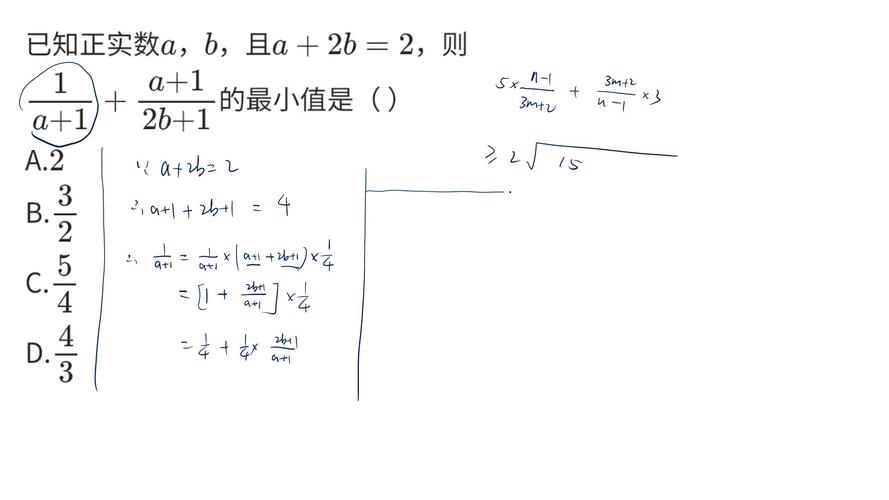 已知正实数a，b，且a + 2b = 2，则
1/(a+1) + (a+1)/(2b+1)的最小值是（ ）
A.2
B.3/2
C.5/4
D.4/3
∵ a+2b=2
∴ a+1+2b+1 = 4
∴ 1/(a+1) = 1/(a+1) × (a+1+2b+1) × 1/4
= [1 + (2b+1)/(a+1)] × 1/4
= 1/4 + 1/4 × (2b+1)/(a+1)
5 × (n-1)/(3m+2) + (3m+2)/(n-1) × 3
≥ 2√15